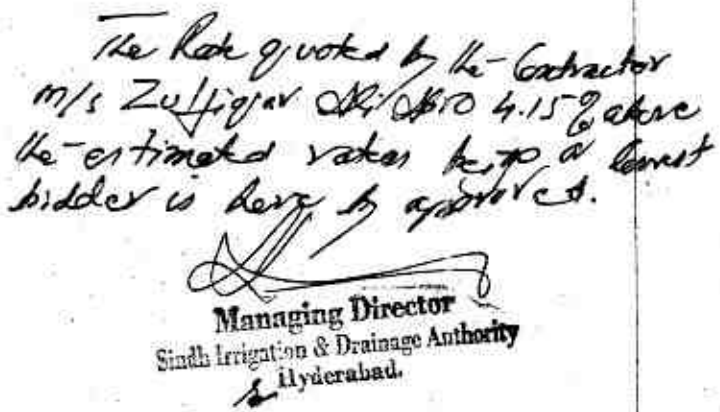 The Rate quoted by the Contractor
M/s Zulfiqar Ali Abro 4.15% above
the estimated rates being a lowest
bidder is here by approved.
Managing Director
Sindh Irrigation & Drainage Authority
Hyderabad.